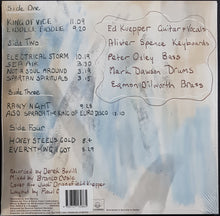 Side One
KING OF VICE 11.09
FIDDLE FIDDLE 9.20
Side Two
ELECTRICAL STORM 10.19
SEA AIR 3.30
NOT A SOUL AROUND 3.19
SPARTAN SPIRITUALS 6.15
Side Three
RAINY NIGHT 9.29
ASD SPROATH - THE KING OF EURO DISCO
Side Four
HONEY STEEL'S GOLD 8.4
EVERYTHING'S GOT
Ed Kuepper Guitar + Vocals
Alister Spence Keyboards
Peter Oxley Bass
Mark Dawson Drums
Eamon Dilworth Brass
Recorded by Derek
Mixed by
Cover by Judi Dransfield Kuepper